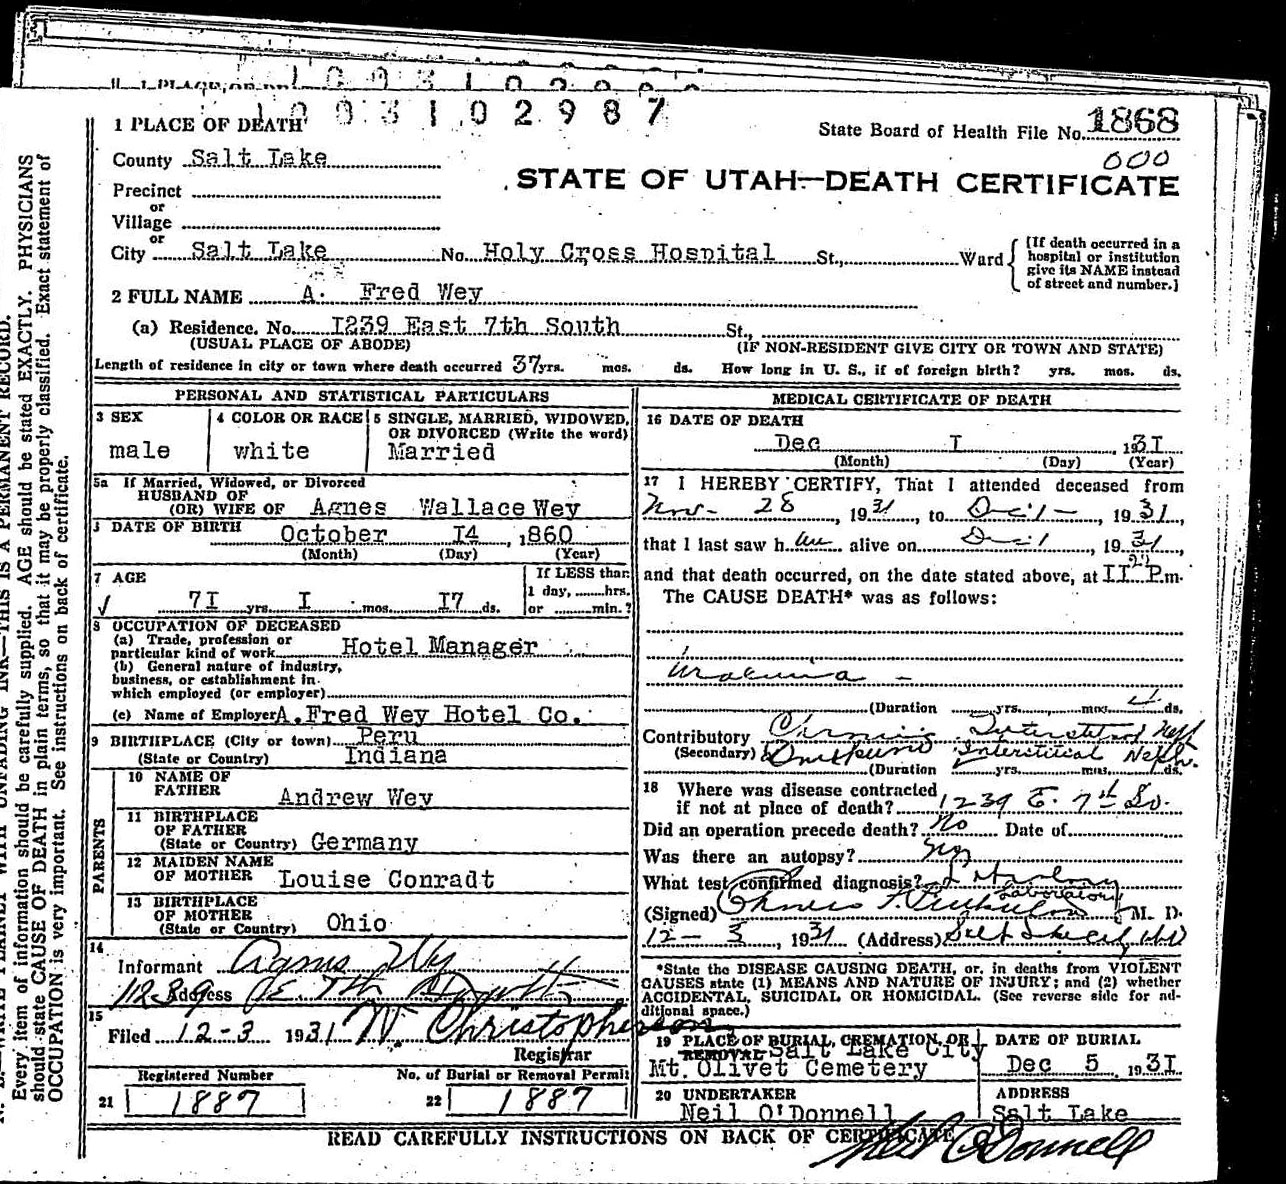 1003102987
1 PLACE OF DEATH
State Board of Health File No. 1868
County Salt Lake
000
STATE OF UTAH—DEATH CERTIFICATE
Precinct
or
Village
or
City Salt Lake No. Holy Cross Hospital St., Ward
[If death occurred in a
hospital or institution
give its NAME instead
of street and number.]
2 FULL NAME A. Fred Wey
(a) Residence. No. I239 East 7th South St.,
(USUAL PLACE OF ABODE) (IF NON-RESIDENT GIVE CITY OR TOWN AND STATE)
Length of residence in city or town where death occurred 37 yrs. mos. ds. How long in U. S., if of foreign birth? yrs. mos. ds.
PERSONAL AND STATISTICAL PARTICULARS
3 SEX
male
4 COLOR OR RACE
white
5 SINGLE, MARRIED, WIDOWED,
OR DIVORCED (Write the word)
Married
5a If Married, Widowed, or Divorced
HUSBAND OF
(OR) WIFE OF Agnes Wallace Wey
DATE OF BIRTH October I4, 1860
(Month) (Day) (Year)
7 AGE
7I yrs. I mos. I7 ds.
If LESS than
1 day, hrs.
or min.?
8 OCCUPATION OF DECEASED
(a) Trade, profession or
particular kind of work Hotel Manager
(b) General nature of industry,
business, or establishment in
which employed (or employer)
(c) Name of Employer A. Fred Wey Hotel Co.
9 BIRTHPLACE (City or town) Peru
(State or Country) Indiana
PARENTS
10 NAME OF
FATHER Andrew Wey
11 BIRTHPLACE
OF FATHER
(State or Country) Germany
12 MAIDEN NAME
OF MOTHER Louise Conradt
13 BIRTHPLACE
OF MOTHER
(State or Country) Ohio
14
Informant Agnes Wey
Address 1239 E. 7th South
15
Filed 12-3 1931 W. Christopherson
Registrar
Registered Number No. of Burial or Removal Permit
21 1887 22 1887
MEDICAL CERTIFICATE OF DEATH
16 DATE OF DEATH
Dec I 193I
(Month) (Day) (Year)
17 I HEREBY CERTIFY, That I attended deceased from
Nov- 28, 1931, to Dec 1-, 1931,
that I last saw him alive on Dec 1, 1931,
and that death occurred, on the date stated above, at II P.m.
The CAUSE DEATH* was as follows:
Uraemia -
(Duration yrs. mos. ds.
Contributory Chronic Interstitial Neph
(Secondary) Interstitial Neph.
(Duration yrs. mos. ds.
18 Where was disease contracted
if not at place of death? 1239 E. 7th So.
Did an operation precede death? No Date of
Was there an autopsy?
What test confirmed diagnosis?
Laboratory
(Signed) M. D.
12-3, 1931 (Address) Salt Lake City
*State the DISEASE CAUSING DEATH, or, in deaths from VIOLENT
CAUSES state (1) MEANS AND NATURE OF INJURY; and (2) whether
ACCIDENTAL, SUICIDAL OR HOMICIDAL. (See reverse side for ad-
ditional space.)
19 PLACE OF BURIAL, CREMATION, OR
REMOVAL Salt Lake City
Mt. Olivet Cemetery
DATE OF BURIAL
Dec 5 193I
20 UNDERTAKER
Neil O'Donnell
ADDRESS
Salt Lake
READ CAREFULLY INSTRUCTIONS ON BACK OF CERTIFICATE
Neil O'Donnell
WRITE PLAINLY WITH UNFADING INK—THIS IS A PERMANENT RECORD.
Every item of information should be carefully supplied. AGE should be stated EXACTLY. PHYSICIANS
should state CAUSE OF DEATH in plain terms, so that it may be properly classified. Exact statement of
OCCUPATION is very important. See instructions on back of certificate.